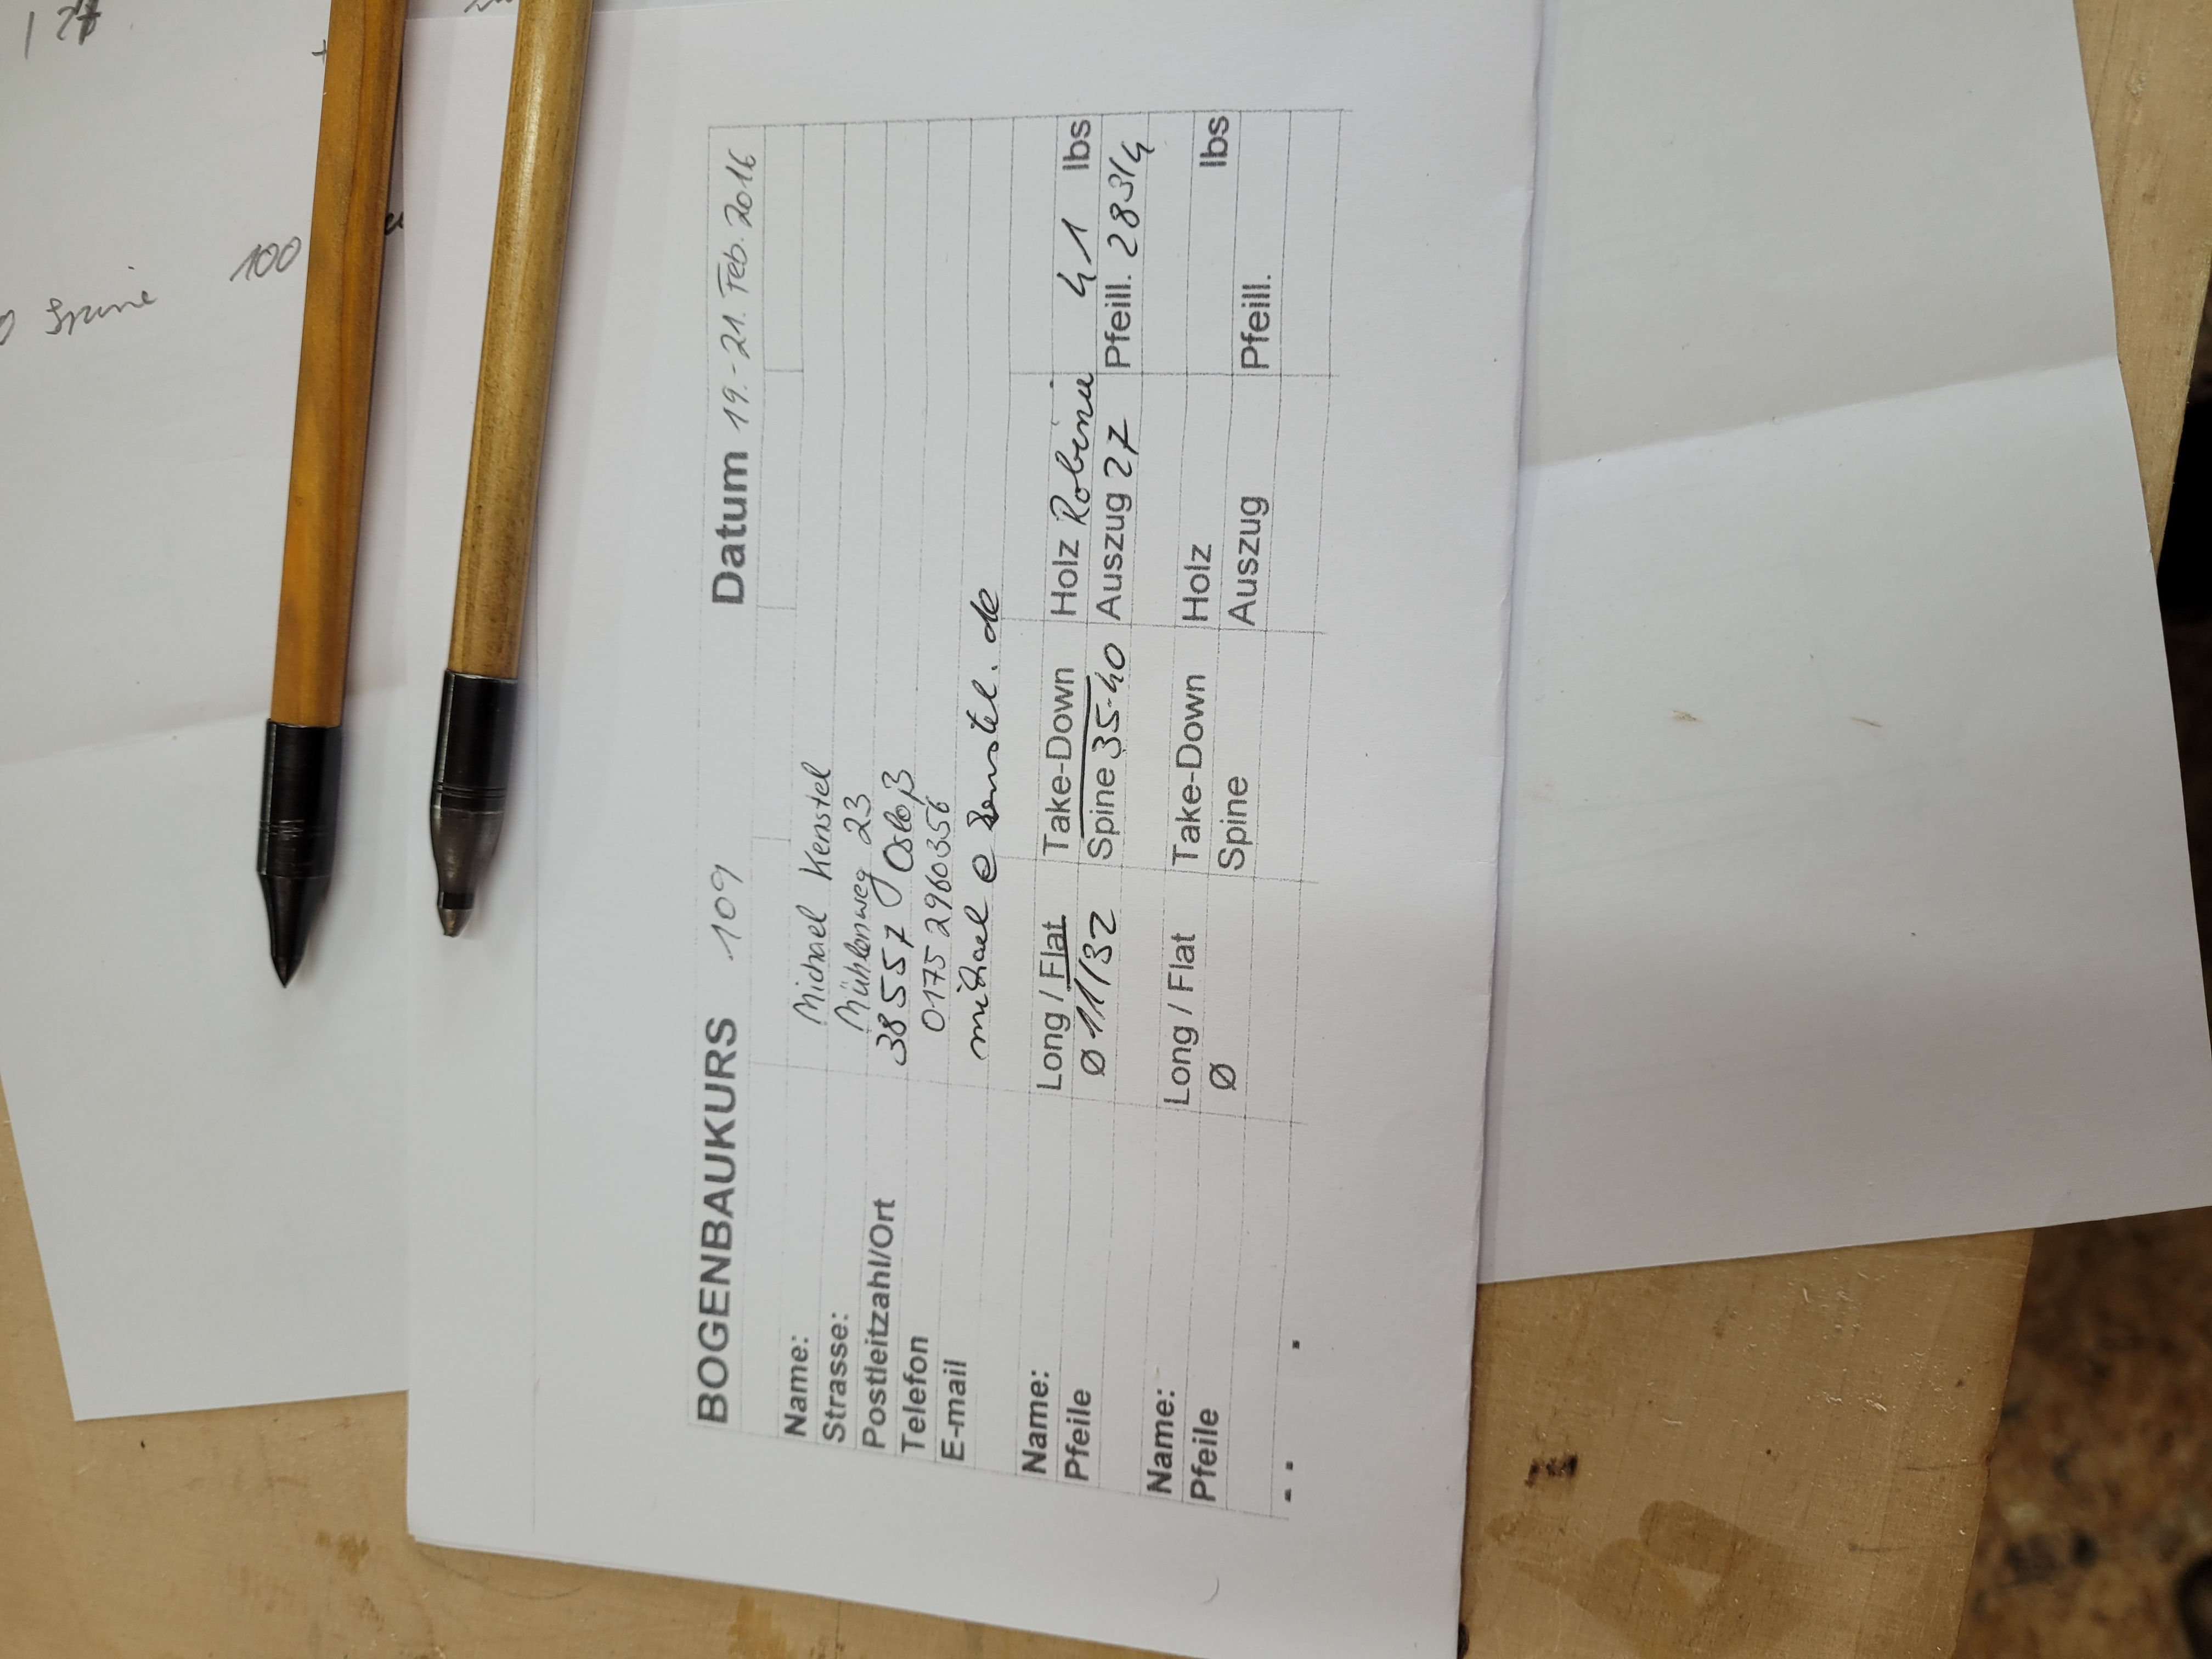 BOGENBAUKURS 109 Datum 19.-21. Feb. 2016
Name: Michael Kenstel
Strasse: Mühlenweg 23
Postleitzahl/Ort 38557 Osloß
Telefon 0175 2960356
E-mail michael@kenstel.de
Name: Long / Flat Take-Down Holz Robinie 41 lbs
Pfeile Ø 11/32 Spine 35-40 Auszug 27 Pfeill. 28 3/4
Name: Long / Flat Take-Down Holz lbs
Pfeile Ø Spine Auszug Pfeill.
Spine 100